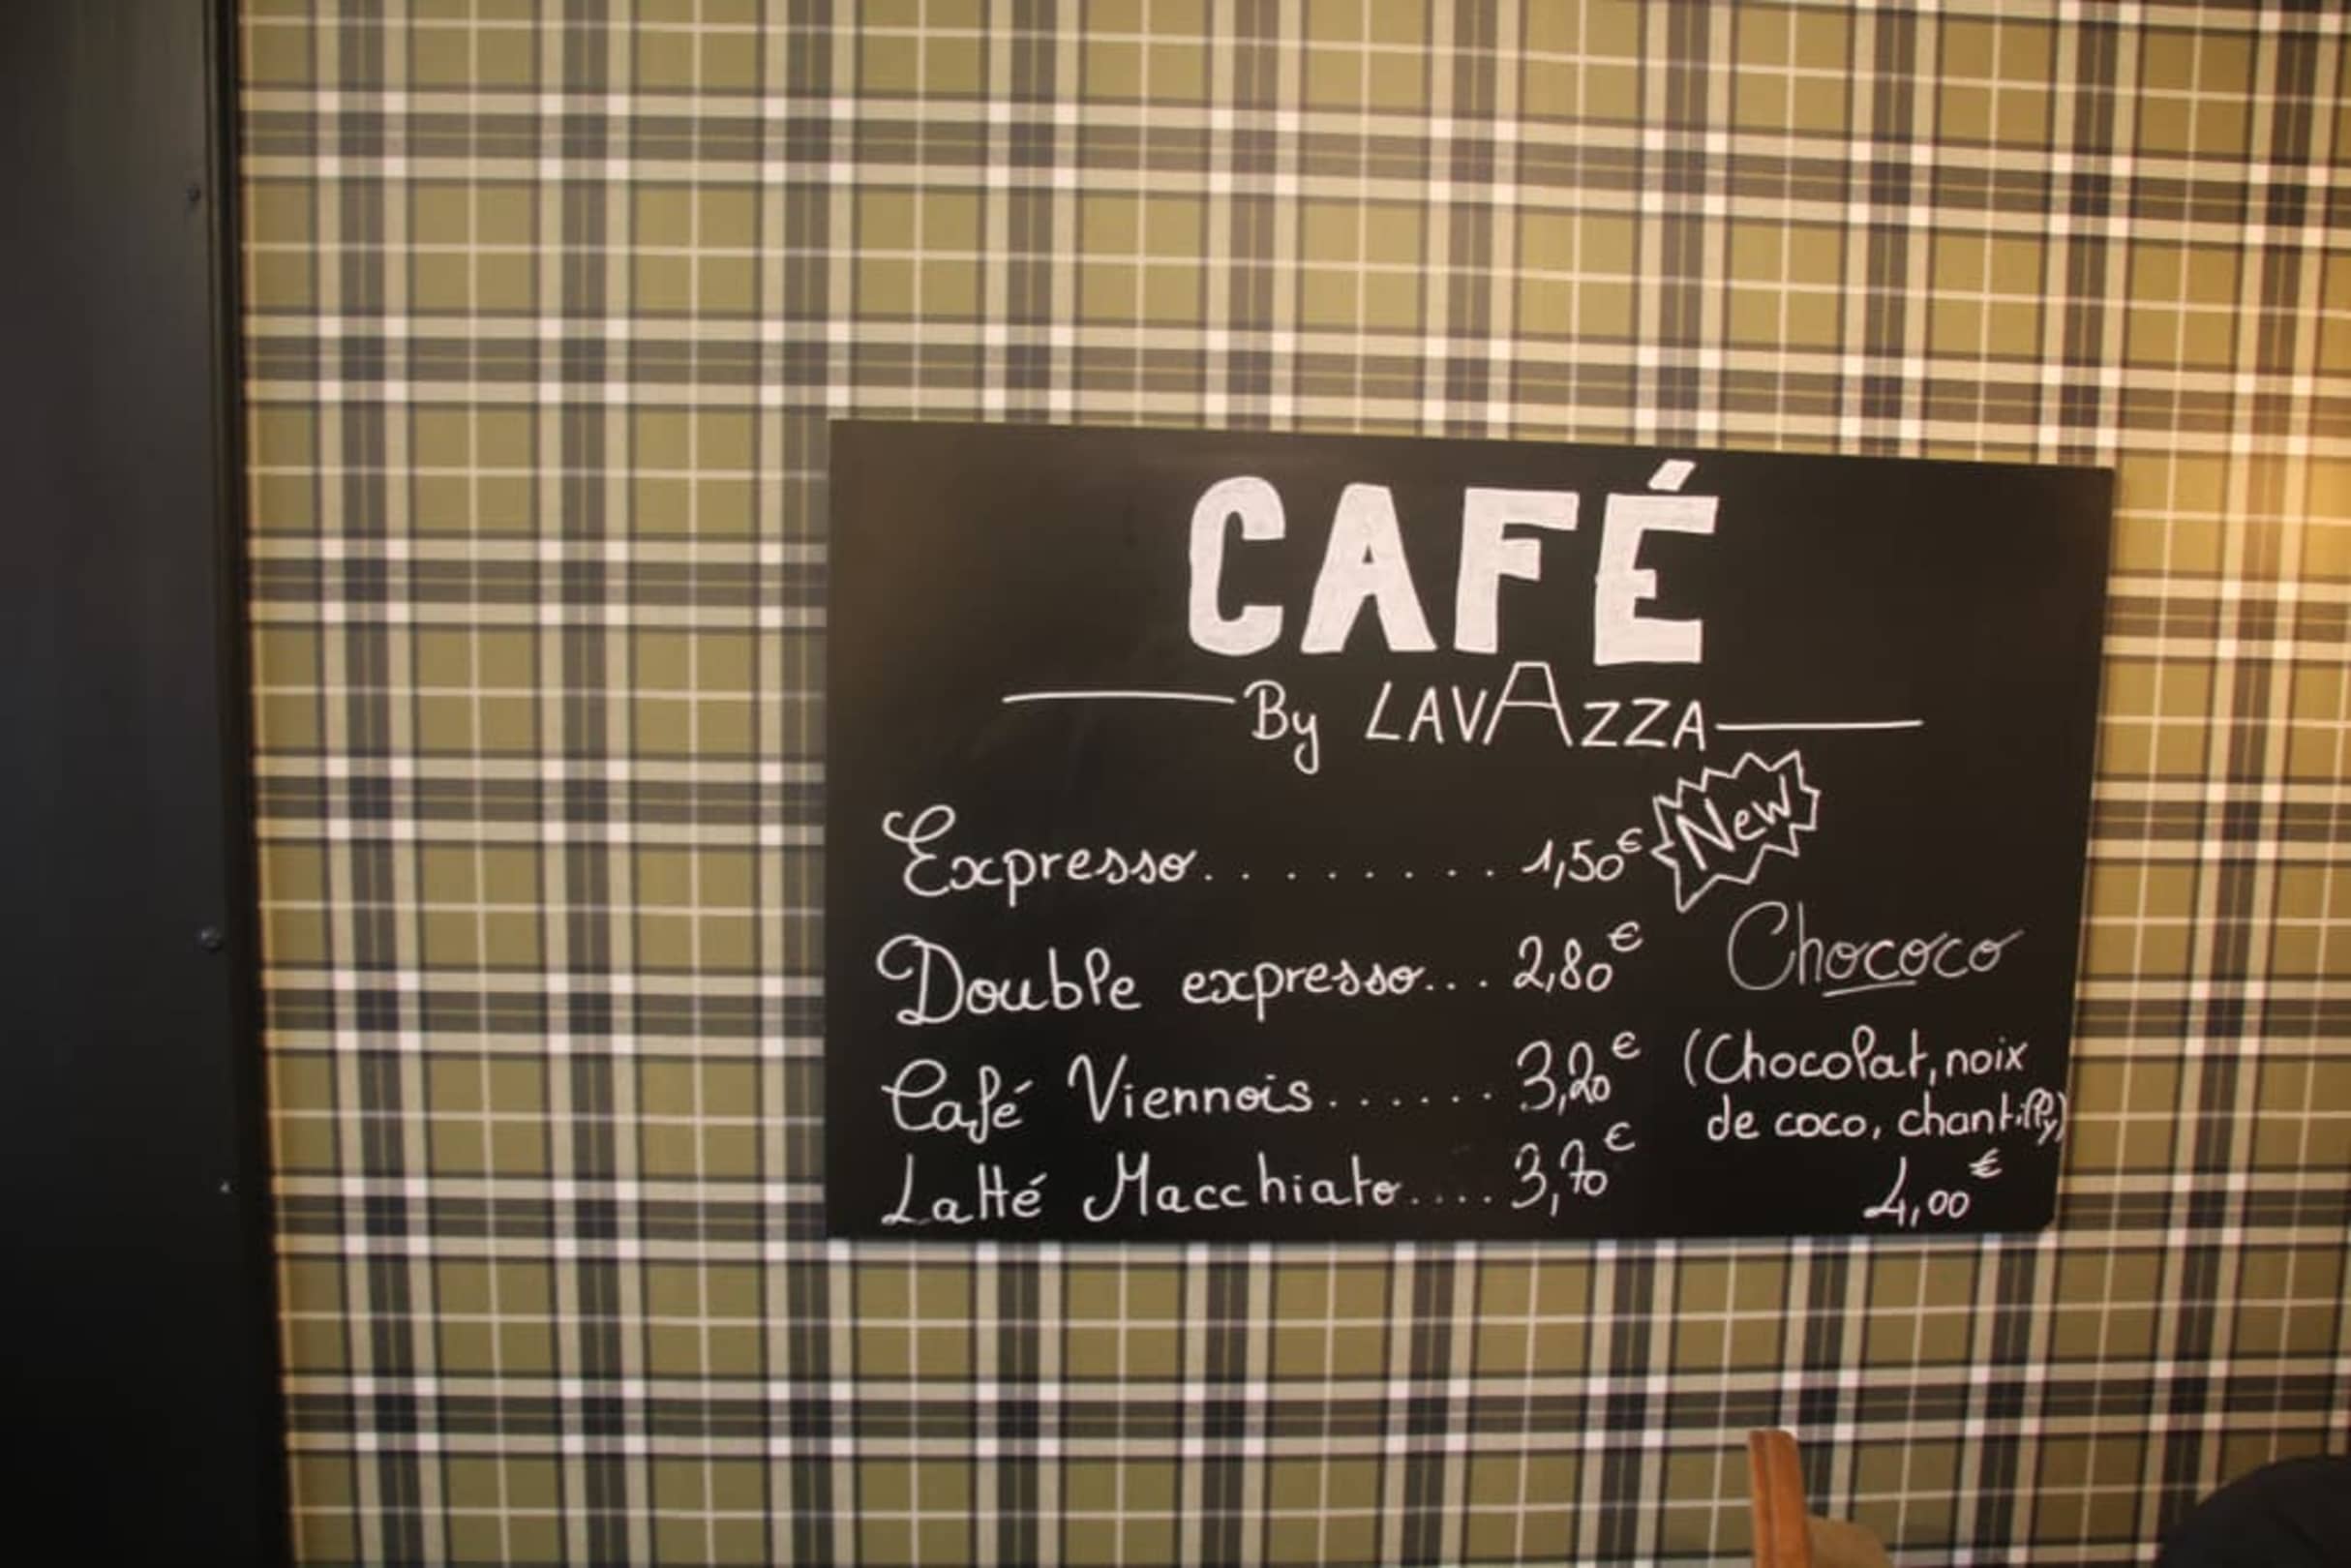 CAFÉ
By LAVAZZA
Expresso......... 1,50€
Double expresso... 2,80€
Café Viennois...... 3,20€
Latté Macchiato.... 3,70€
New
Chococo
(Chocolat, noix
de coco, chantilly)
4,00€